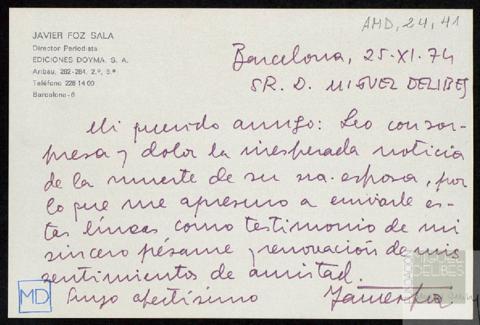 AMD, 24, 41
JAVIER FOZ SALA
Director Periodista
EDICIONES DOYMA, S. A.
Aribau, 282-284, 2.º, 5.ª
Teléfono 228 14 00
Barcelona-6
Barcelona, 25-XI.74
SR. D. MIGUEL DELIBES
Mi querido amigo: Leo con sor-
presa y dolor la inesperada noticia
de la muerte de su sra. esposa, por
lo que me apresuro a enviarle es-
tas líneas como testimonio de mi
sincero pésame y renovación de mis
sentimientos de amistad.
Suyo afectísimo
Javier Foz
MD
FUNDACIÓN
MIGUEL
DELIBES